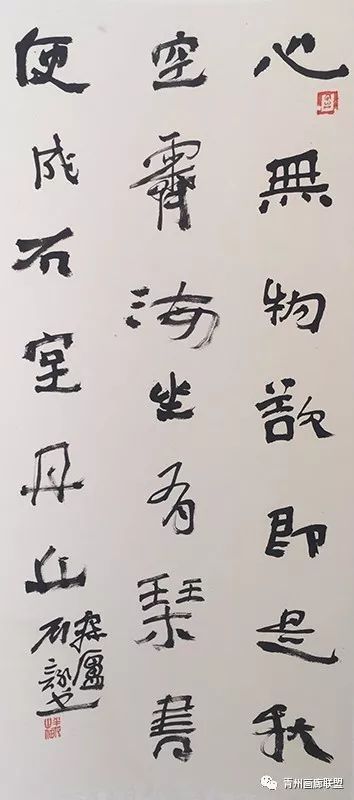 心無物欲即是秋
空霽海坐有琴書
便成石室丹丘
廬
石
青州画廊联盟